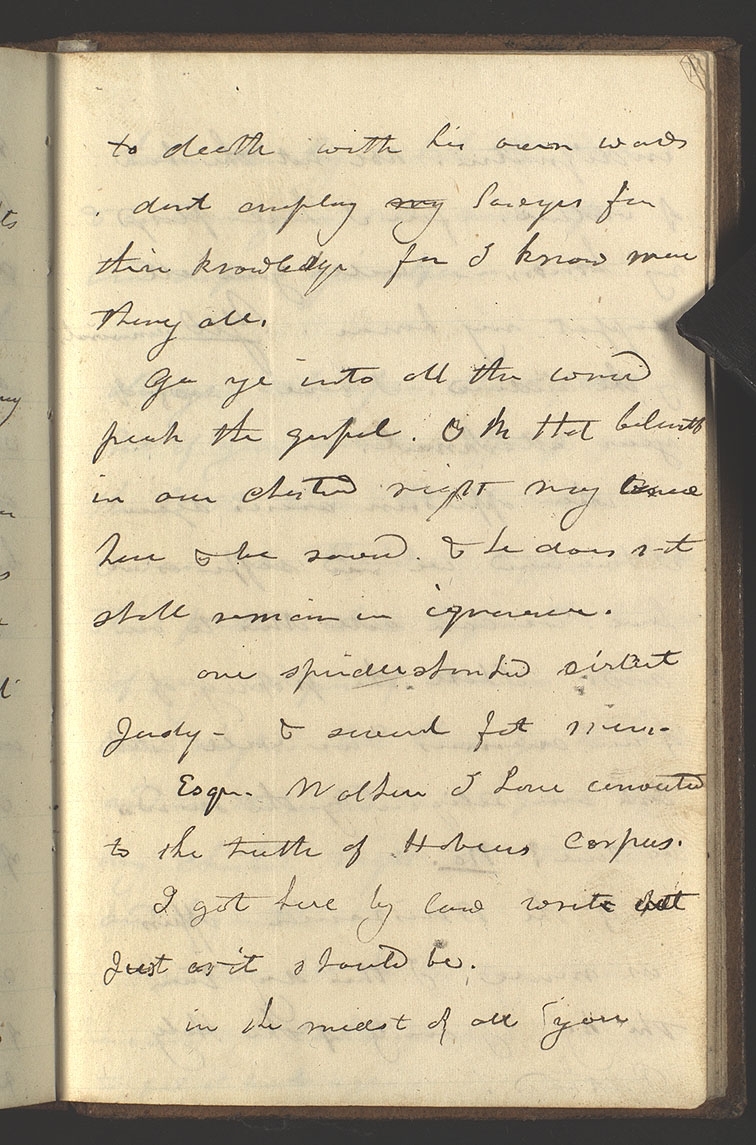 to death with his own words
. dont employ my lawyers for
their knowledge for I know more
they all.
Go ye into all the world
preach the gospel. & He that believeth
in our chartered right may come
here & be saved. & he does not
shall remain in ignorance.
one
Judy - & several fat men.
Esqr. Walker I have converted
to the truth of Habeus Corpus.
I got here by law write
Just as it should be.
in the midst of all your